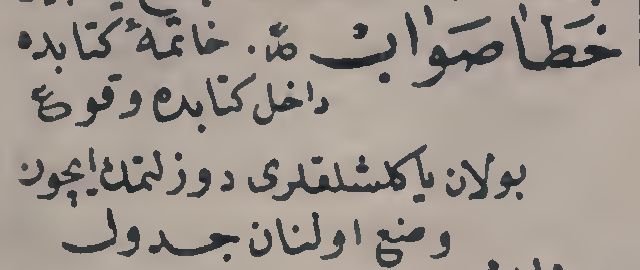 خطا صواب ص. خاتمهٔ كتابده
داخل كتابده وقوع
بولان ياكلشلقلرى دوزلتمك ايچون
وضع اولنان جدول